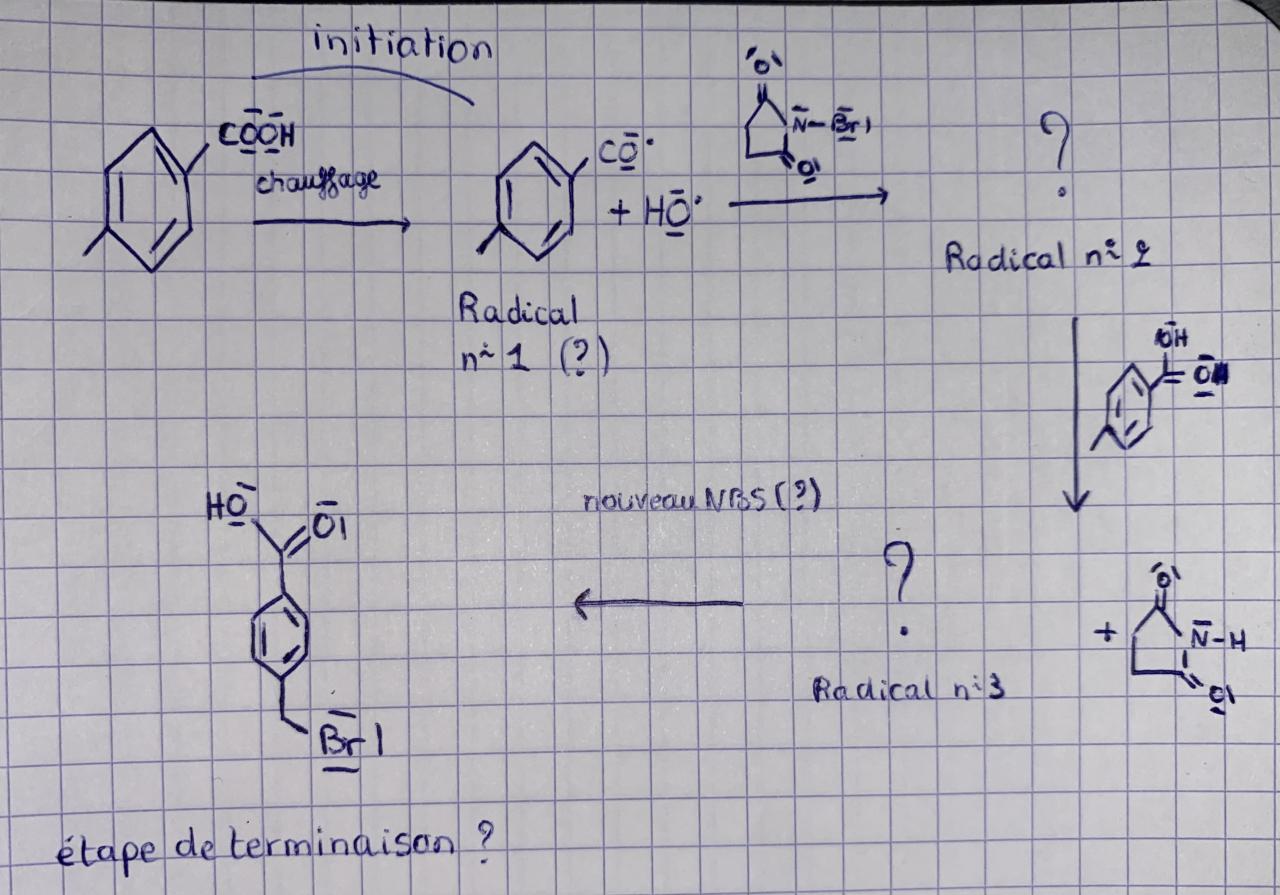 initiation
COOH
chauffage
CO•
+ HO•
O
N-Br
O
?
Radical n° 2
Radical
n° 1 (?)
OH
O
HO
O
nouveau NBS (?)
?
Radical n°3
+
O
N-H
O
Br
étape de terminaison ?